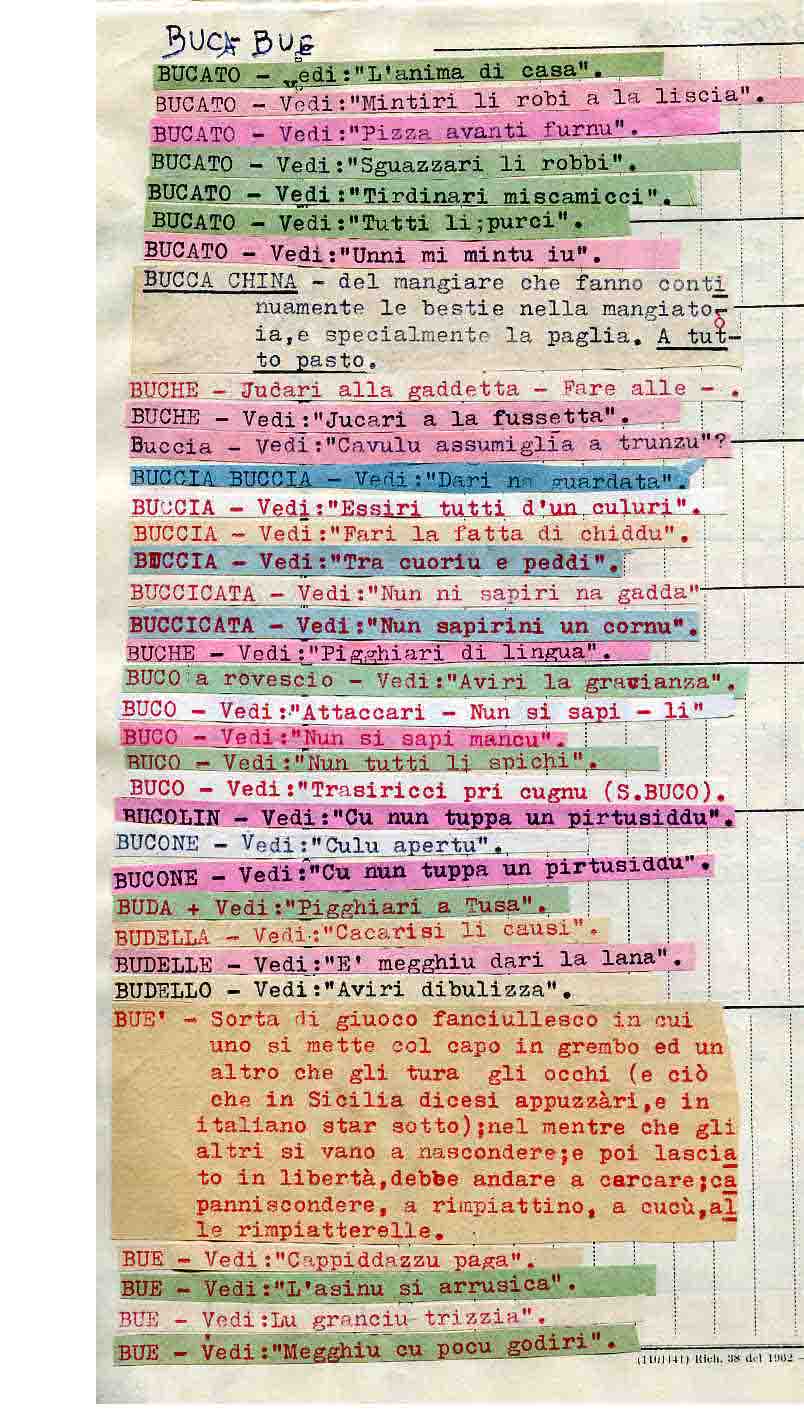 BUCA BUE
BUCATO - vedi:"L'anima di casa".
BUCATO - Vedi:"Mintiri li robi a la liscia".
BUCATO - Vedi:"Pizza avanti furnu".
BUCATO - Vedi:"Sguazzari li robbi".
BUCATO - Vedi:"Tirdinari miscamicci".
BUCATO - Vedi:"Tutti li;purci".
BUCATO - Vedi:"Unni mi mintu iu".
BUCCA CHINA - del mangiare che fanno conti
nuamente le bestie nella mangiato-
ia,e specialmente la paglia. A tut-
to pasto.
BUCHE - Jucari alla gaddetta - Fare alle - .
BUCHE - Vedi:"Jucari a la fussetta".
Buccia - Vedi:"Cavulu assumiglia a trunzu"?
BUCCIA BUCCIA - Vedi:"Dari na guardata".
BUCCIA - Vedi:"Essiri tutti d'un culuri".
BUCCIA - Vedi:"Fari la fatta di chiddu".
BUCCIA - Vedi:"Tra cuoriu e peddi".
BUCCICATA - Vedi:"Nun ni sapiri na gadda"
BUCCICATA - Vedi:"Nun sapirini un cornu".
BUCHE - Vedi:"Pigghiari di lingua".
BUCO a rovescio - Vedi:"Aviri la gravianza".
BUCO - Vedi:"Attaccari - Nun si sapi - li"
BUCO - Vedi:"Nun si sapi mancu".
BUCO - Vedi:"Nun tutti li spichi".
BUCO - Vedi:"Trasiricci pri cugnu (S.BUCO).
BUCOLIN - Vedi:"Cu nun tuppa un pirtusiddu".
BUCONE - Vedi:"Culu apertu".
BUCONE - Vedi:"Cu nun tuppa un pirtusiddu".
BUDA + Vedi:"Pigghiari a Tusa".
BUDELLA - Vedi:"Cacarisi li causi".
BUDELLE - Vedi:"E' megghiu dari la lana".
BUDELLO - Vedi:"Aviri dibulizza".
BUE' - Sorta di giuoco fanciullesco in cui
uno si mette col capo in grembo ed un
altro che gli tura gli occhi (e ciò
che in Sicilia dicesi appuzzàri,e in
italiano star sotto);nel mentre che gli
altri si vano a nascondere;e poi lascia
to in libertà,debbe andare a carcare;ca
panniscondere, a rimpiattino, a cucù,al
le rimpiatterelle.
BUE - Vedi:"Cappiddazzu paga".
BUE - Vedi:"L'asinu si arrusica".
BUE - Vedi:Lu granciu trizzia".
BUE - Vedi:"Megghiu cu pocu godiri".
Rich. 38 del 1962 -